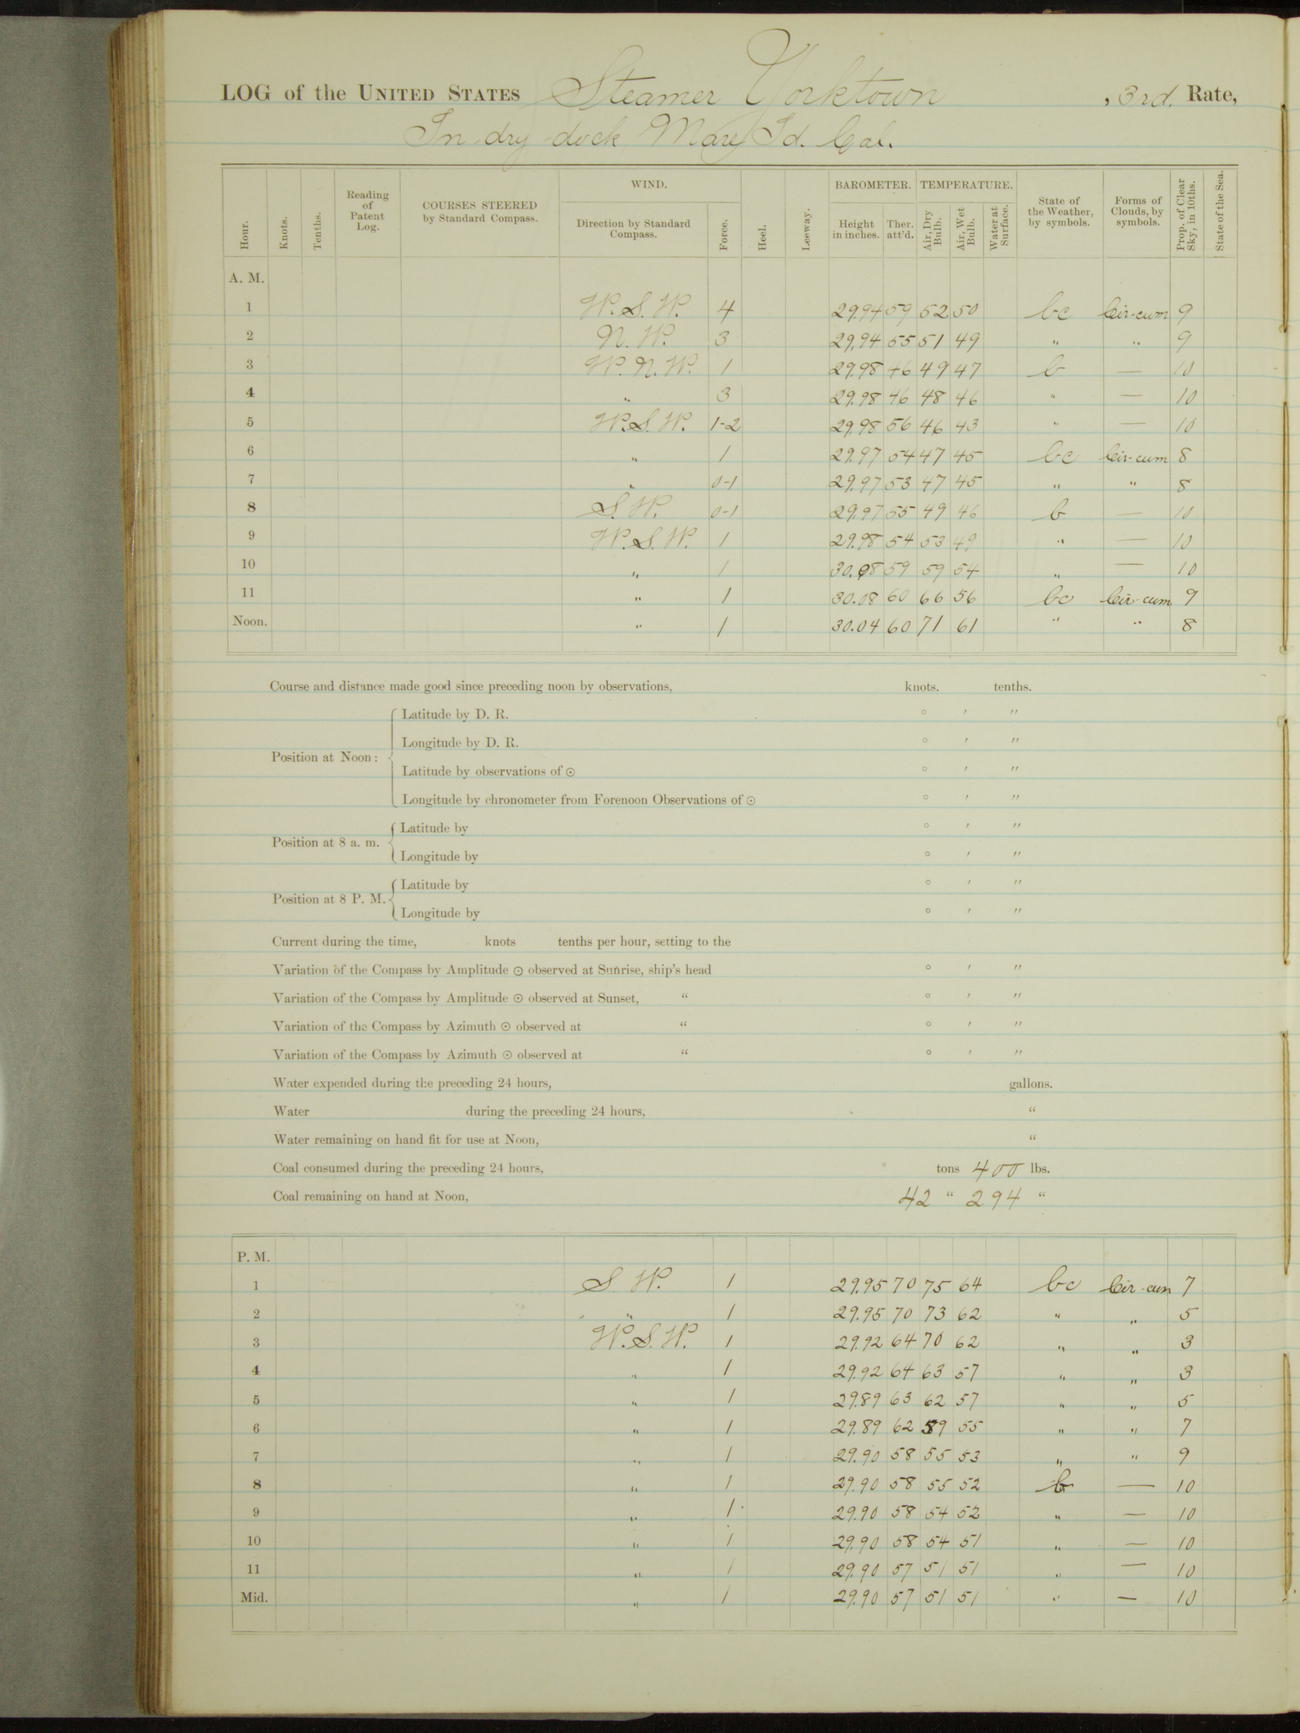 LOG of the UNITED STATES Steamer Yorktown, 3rd. Rate,
In dry dock Mare Id. Cal.
Hour. Knots. Tenths. Reading of Patent Log. COURSES STEERED by Standard Compass. WIND. Direction by Standard Compass. Force. Heel. Leeway. BAROMETER. Height in inches. Ther. att'd. TEMPERATURE. Air, Dry Bulb. Air, Wet Bulb. Water at Surface. State of the Weather, by symbols. Forms of Clouds, by symbols. Prop. of Clear Sky, in 10ths. State of the Sea.
A. M.
1 W.S.W. 4 29.94 59 52 50 bc Cir-cum 9
2 N.W. 3 29.94 55 51 49 " " 9
3 W.N.W. 1 29.98 46 49 47 b — 10
4 " 3 29.98 46 48 46 " — 10
5 W.S.W. 1-2 29.98 56 46 43 " — 10
6 " 1 29.97 54 47 45 bc Cir-cum 8
7 " 0-1 29.97 53 47 45 " " 8
8 S.W. 0-1 29.97 55 49 46 b — 10
9 W.S.W. 1 29.98 54 53 49 " — 10
10 " 1 30.08 59 59 54 " — 10
11 " 1 30.08 60 66 56 bc Cir-cum 9
Noon. " 1 30.04 60 71 61 " " 8
Course and distance made good since preceding noon by observations, knots. tenths.
Position at Noon:
Latitude by D. R. ° ' "
Longitude by D. R. ° ' "
Latitude by observations of ☉ ° ' "
Longitude by chronometer from Forenoon Observations of ☉ ° ' "
Position at 8 a. m.
Latitude by ° ' "
Longitude by ° ' "
Position at 8 P. M.
Latitude by ° ' "
Longitude by ° ' "
Current during the time, knots tenths per hour, setting to the
Variation of the Compass by Amplitude ☉ observed at Sunrise, ship's head ° ' "
Variation of the Compass by Amplitude ☉ observed at Sunset, " ° ' "
Variation of the Compass by Azimuth ☉ observed at " ° ' "
Variation of the Compass by Azimuth ☉ observed at " ° ' "
Water expended during the preceding 24 hours, gallons.
Water during the preceding 24 hours, "
Water remaining on hand fit for use at Noon, "
Coal consumed during the preceding 24 hours, tons 400 lbs.
Coal remaining on hand at Noon, 42 " 294 "
P. M.
1 S.W. 1 29.95 70 75 64 bc Cir-cum 7
2 " 1 29.95 70 73 62 " " 5
3 W.S.W. 1 29.92 64 70 62 " " 3
4 " 1 29.92 64 63 57 " " 3
5 " 1 29.89 63 62 57 " " 5
6 " 1 29.89 62 59 55 " " 7
7 " 1 29.90 58 55 53 " " 9
8 " 1 29.90 58 55 52 b — 10
9 " 1 29.90 58 54 52 " — 10
10 " 1 29.90 58 54 51 " — 10
11 " 1 29.90 57 51 51 " — 10
Mid. " 1 29.90 57 51 51 " — 10